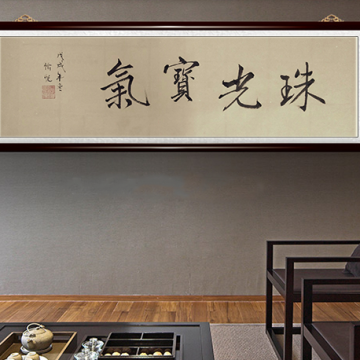 珠光寶氣
戊戌年